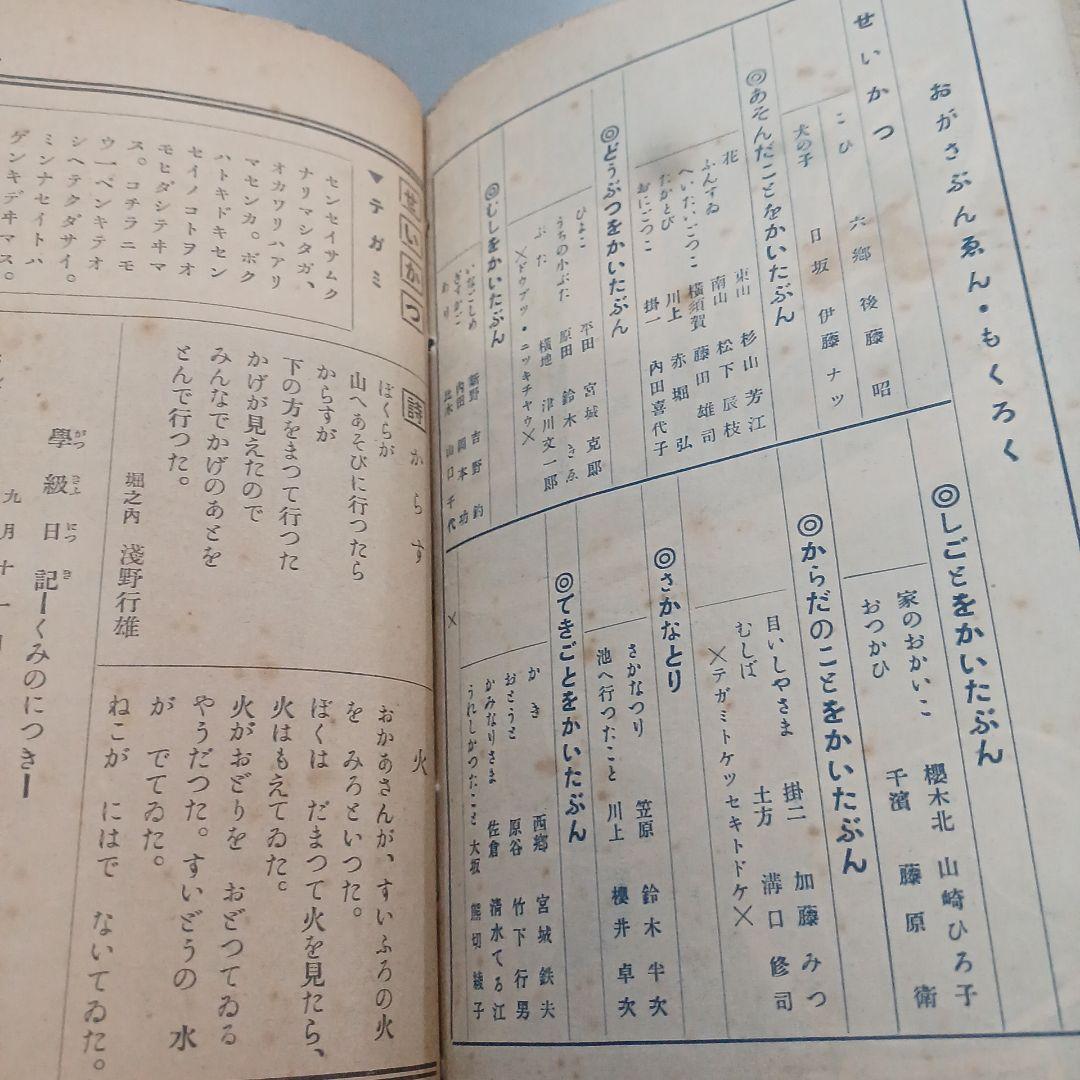 おがさぶんゑん・もくろく
せいかつ
こひ 六鄕 後藤昭
犬の子 日坂 伊藤ナツ
◎あそんだことをかいたぶん
北 東山 杉山芳江
ふんすゐ 南山 松下辰枝
へいたいごつこ 橫須賀 藤田雄司
たかとび 川上 赤堀弘
おにごつこ 掛一 內田喜代子
◎どうぶつをかいたぶん
ひよこ 平田 宮城克郞
うちの小ぶた 原田 鈴木きゑ
ぶた 橫地 津川文一郞
×ドウブツ・ニツキチヤウ×
◎むしをかいたぶん
いなごしめ 新野 吉野鈞
內田 岡本功
あり 山口千代
◎しごとをかいたぶん
家のおかいこ 櫻木北 山崎ひろ子
おつかひ 千濱 藤原衛
◎からだのことをかいたぶん
目いしやさま 掛二 加藤みつ
むしば 土方 溝口修司
×テガミトケツセキトドケ×
◎さかなとり
さかなつり 笠原 鈴木半次
池へ行つたこと 川上 櫻井卓次
◎てきごとをかいたぶん
かき 西鄕 宮城鉄夫
おとうと 原谷 竹下行男
かみなりさま 佐倉 淸水てる江
うれしかつたこと 大坂 熊切綾子
×
せいかつ
▼テガミ
センセイサムク
ナリマシタガ、
オカワリハアリ
マセンカ。ボク
ハトキドキセン
セイノコトヲオ
モヒダシテヰマ
ス。コチラニモ
ウ一ペンキテオ
シヘテクダサイ。
ミンナセイトハ
ゲンキデヰマス。
詩 からす
ぼくらが
山へあそびに行つたら
からすが
下の方をまつて行つた
かげが見えたので
みんなでかげのあとを
とんで行つた。
堀之內 淺野行雄
火
おかあさんが、すいふろの火
を みろといつた。
ぼくは だまつて火を見たら、
火はもえてゐた。
火がおどりを おどつてゐる
やうだつた。すいどうの 水
が でてゐた。
ねこが にはで ないてゐた。
學級日記ーくみのにつきー
九月十一